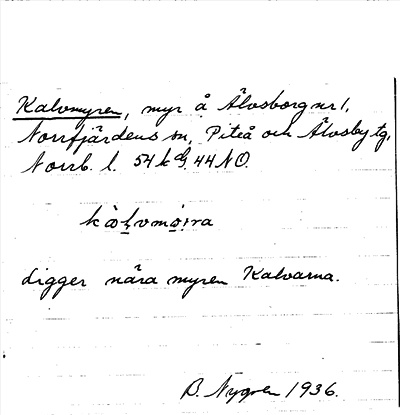 Kalvmyren, myr å Älvsborg nr 1,
Norrfjärdens sn, Piteå och Älvsby tg,
Norrb. l. 54 k d.g. 44 N O.
kàḷvmø̣:ra
Ligger nära myren Kalvarna.
B. Nygren 1936.